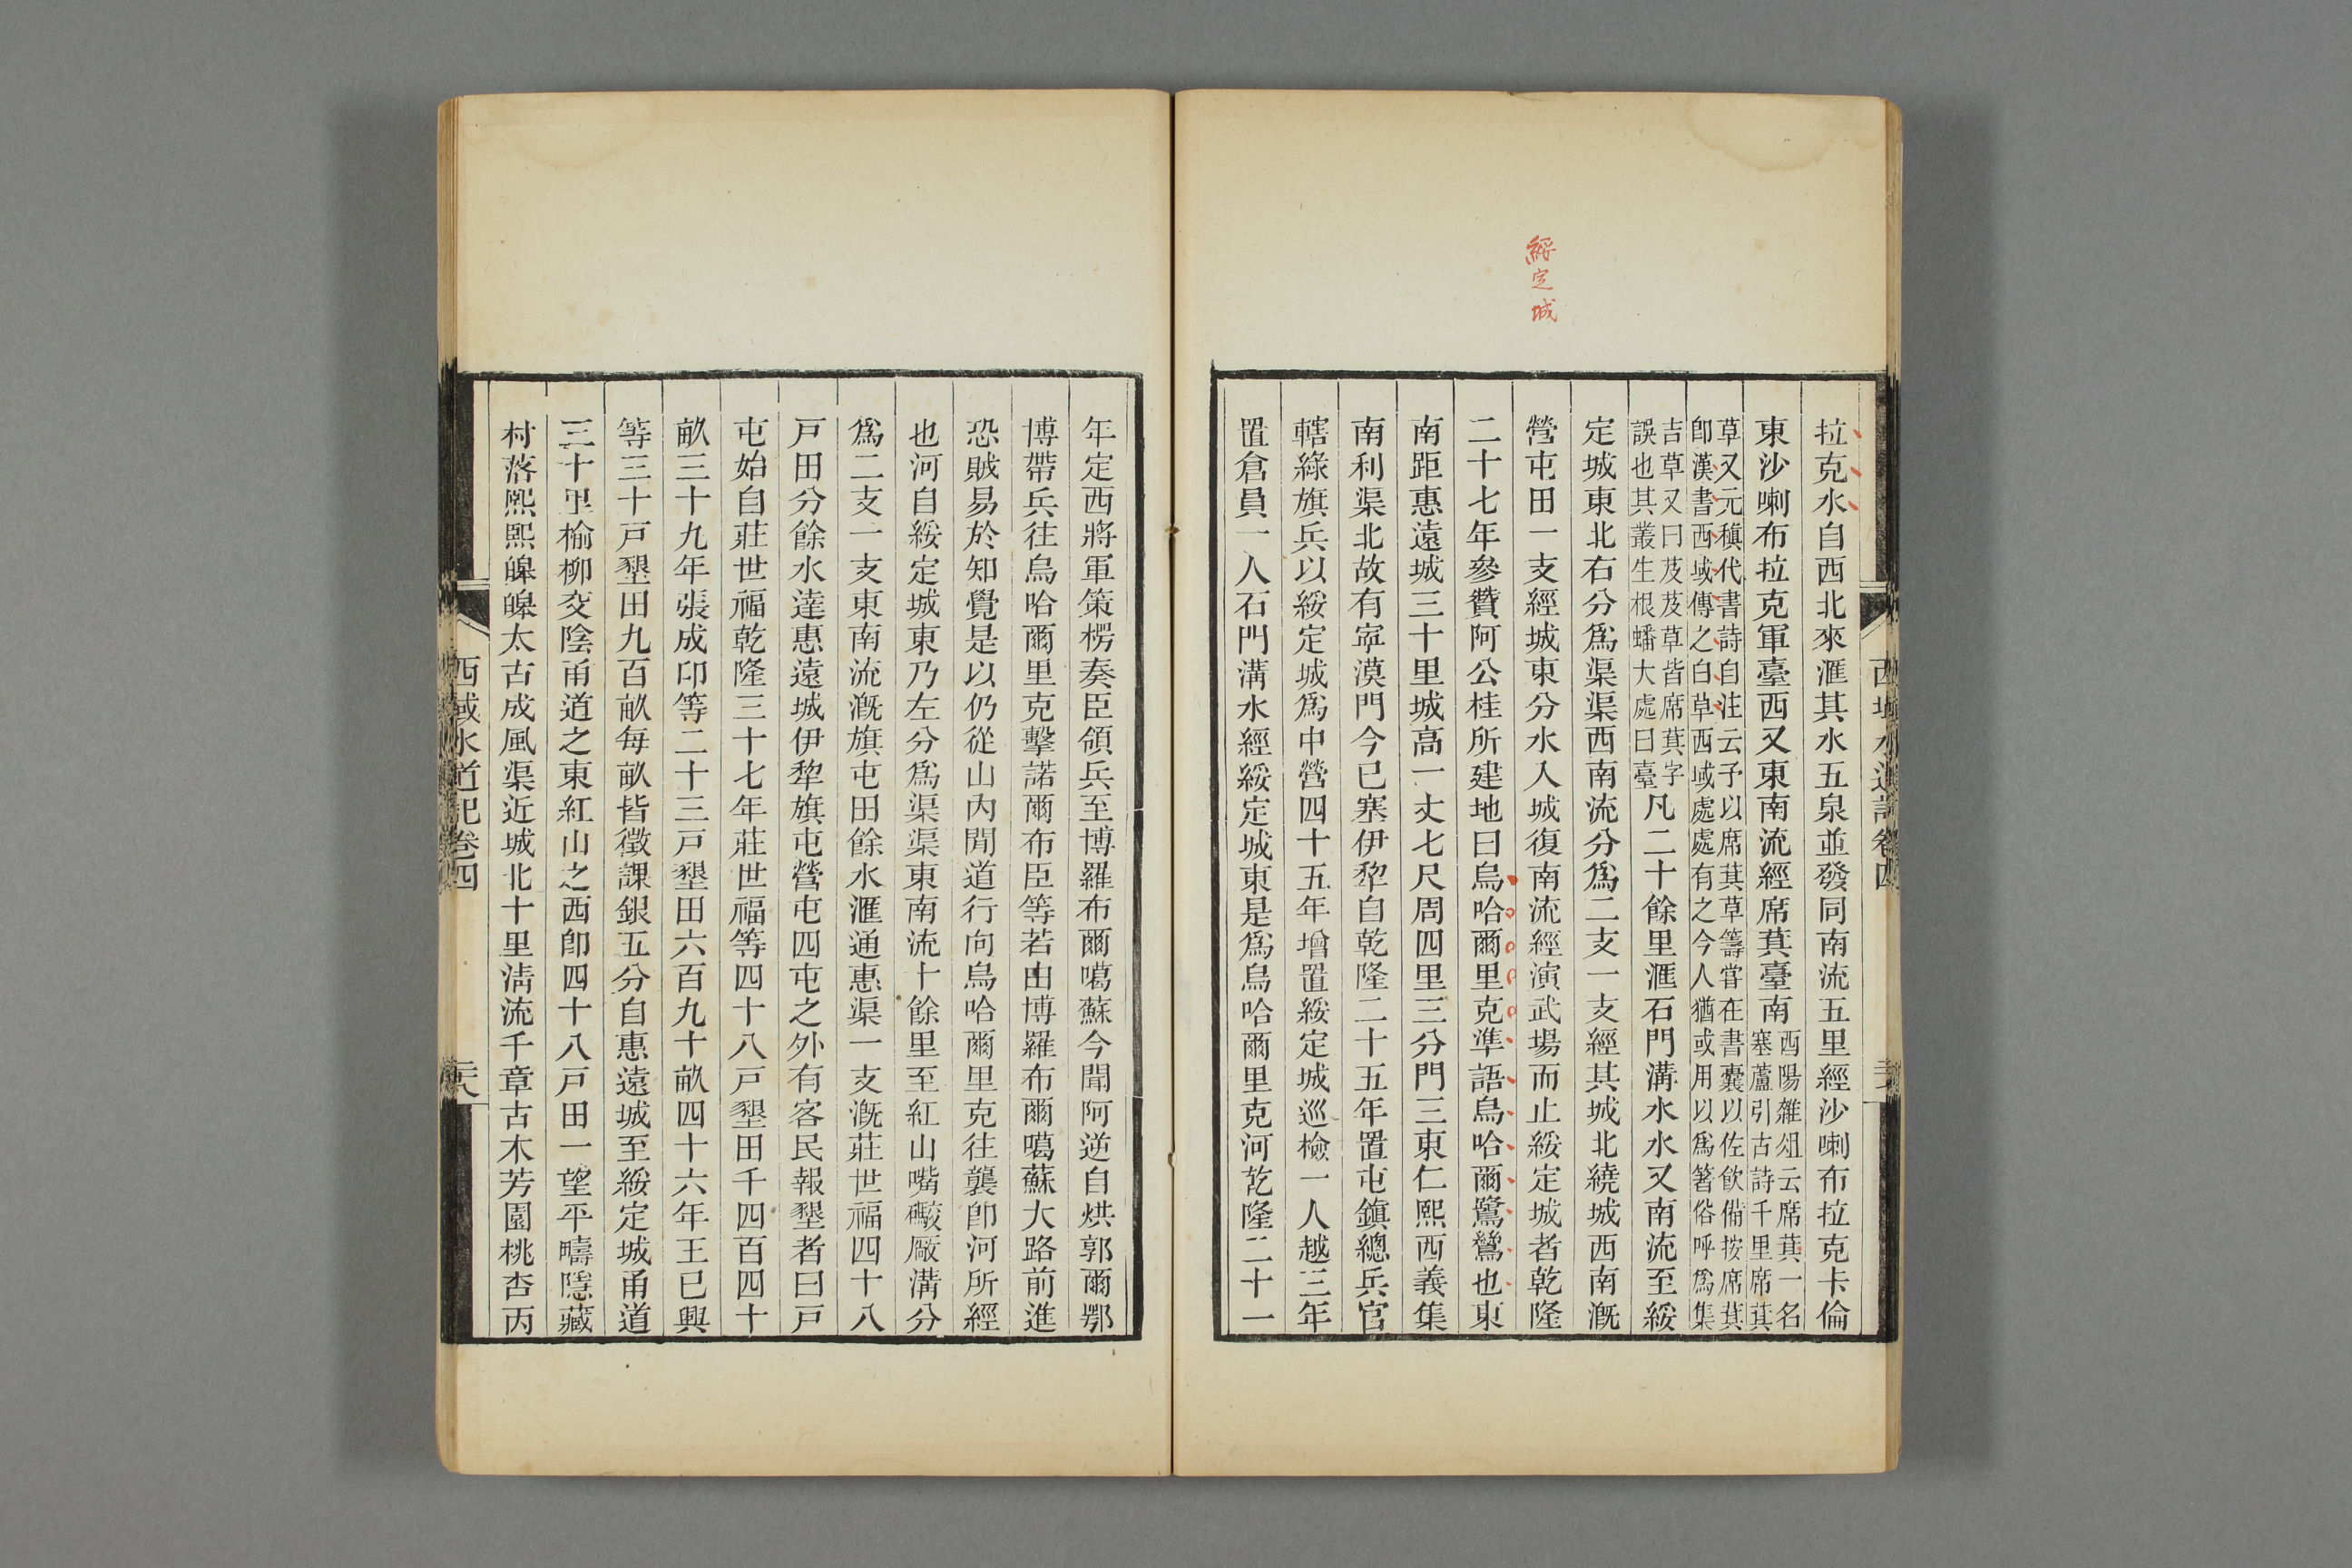 綏定城
拉克水自西北來滙其水五泉並發同南流五里經沙喇布拉克卡倫
東沙喇布拉克軍臺西又東南流經席萁臺南酉陽雜俎云席萁一名塞蘆引古詩千里席萁
草又元稹代書詩自注云予以席萁草籌嘗在書囊以佐飮備按席萁卽漢書西域傳之白草西域處處有之今人猶或用以爲箸俗呼爲集
吉草又曰芨芨草皆席萁字誤也其叢生根蟠大處曰臺凡二十餘里滙石門溝水水又南流至綏
定城東北右分爲渠渠西南流分爲二支一支經其城北繞城西南漑
營屯田一支經城東分水入城復南流經演武場而止綏定城者乾隆
二十七年參贊阿公桂所建地曰烏哈爾里克準語烏哈爾鷺鶿也東
南距惠遠城三十里城高一丈七尺周四里三分門三東仁熙西義集
南利渠北故有寧漠門今已塞伊犂自乾隆二十五年置屯鎭總兵官
轄綠旗兵以綏定城爲中營四十五年增置綏定城巡檢一人越三年
置倉員一人石門溝水經綏定城東是爲烏哈爾里克河乾隆二十一
西域水道記卷四
年定西將軍策楞奏臣領兵至博羅布爾噶蘇今聞阿逆自烘郭爾鄂
博帶兵往烏哈爾里克擊諾爾布臣等若由博羅布爾噶蘇大路前進
恐賊易於知覺是以仍從山內閒道行向烏哈爾里克往襲卽河所經
也河自綏定城東乃左分爲渠渠東南流十餘里至紅山嘴礮厰溝分
爲二支一支東南流漑旗屯田餘水滙通惠渠一支漑莊世福四十八
戸田分餘水達惠遠城伊犂旗屯營屯四屯之外有客民報墾者曰戸
屯始自莊世福乾隆三十七年莊世福等四十八戸墾田千四百四十
畝三十九年張成印等二十三戸墾田六百九十畝四十六年王已興
等三十戸墾田九百畝每畝皆徵課銀五分自惠遠城至綏定城甬道
三十里榆柳交陰甬道之東紅山之西卽四十八戸田一望平疇隱藏
村落熙熙皞皞太古成風渠近城北十里淸流千章古木芳園桃杏丙
西域水道記卷四
二十八